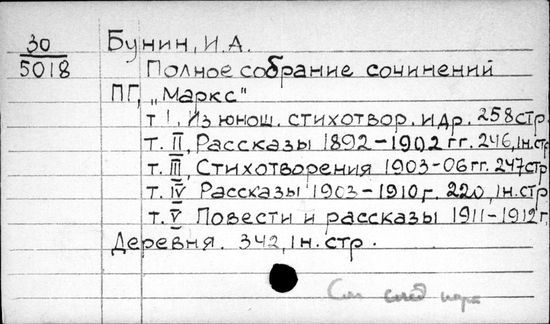 30
5018
Бунин, И.А.
Полное собрание сочинений
ПГ, „Маркс"
т I. Из юнош. стихотвор. и др. 258 стр.
т. II, Рассказы 1892-1902 гг. 246, Iн.стр
т. III, Стихотворения 1903-06 гг. 247 стр
т. IV Рассказы 1903-1910 г. 220, Iн.стр
т. V Повести и рассказы 1911-1912 г,
Деревня. 342, Iн.стр.
См след